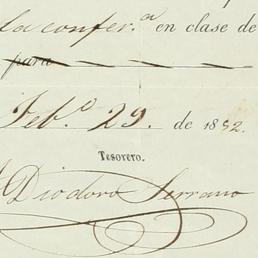 la confer.a en clase de
para
Feb.o 29. de 1852.
Tesorero.
Diodoro Serrano